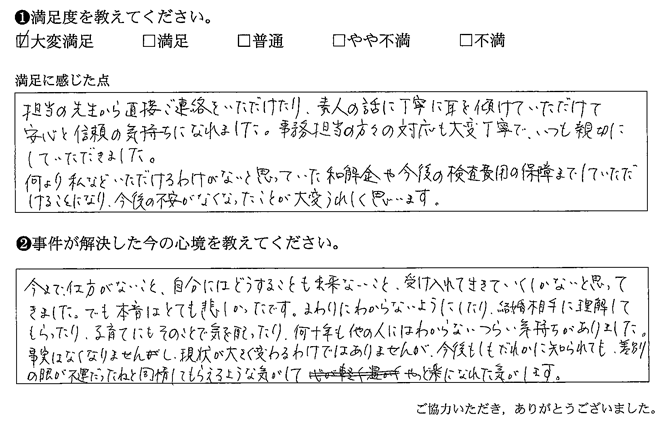 ❶満足度を教えてください。
☑大変満足 □満足 □普通 □やや不満 □不満
満足に感じた点
担当の先生から直接ご連絡をいただけたり、素人の話に丁寧に耳を傾けていただけて
安心と信頼の気持ちになれました。事務担当の方々の対応も大変丁寧で、いつも親切に
していただきました。
何より私などいただけるわけがないと思っていた和解金や今後の検査費用の保障までしていただ
けることになり、今後の不安がなくなったことが大変うれしく思います。
❷事件が解決した今の心境を教えてください。
今まで、仕方がないこと、自分にはどうすることも出来ないこと、受け入れて生きていくしかないと思って
きました。でも本音はとても悲しかったです。まわりにわからないようにしたり、結婚相手に理解して
もらったり、子育てにもそのことで気を配ったり、何十年も他の人にはわからないつらい気持ちがありました。
事実はなくなりませんがし、現状が大きく変わるわけではありませんが、今後もしもだれかに知られても、差別
の眼が不運だったねと同情してもらえるような気がして やっと楽になれた気がします。
ご協力いただき，ありがとうございました。